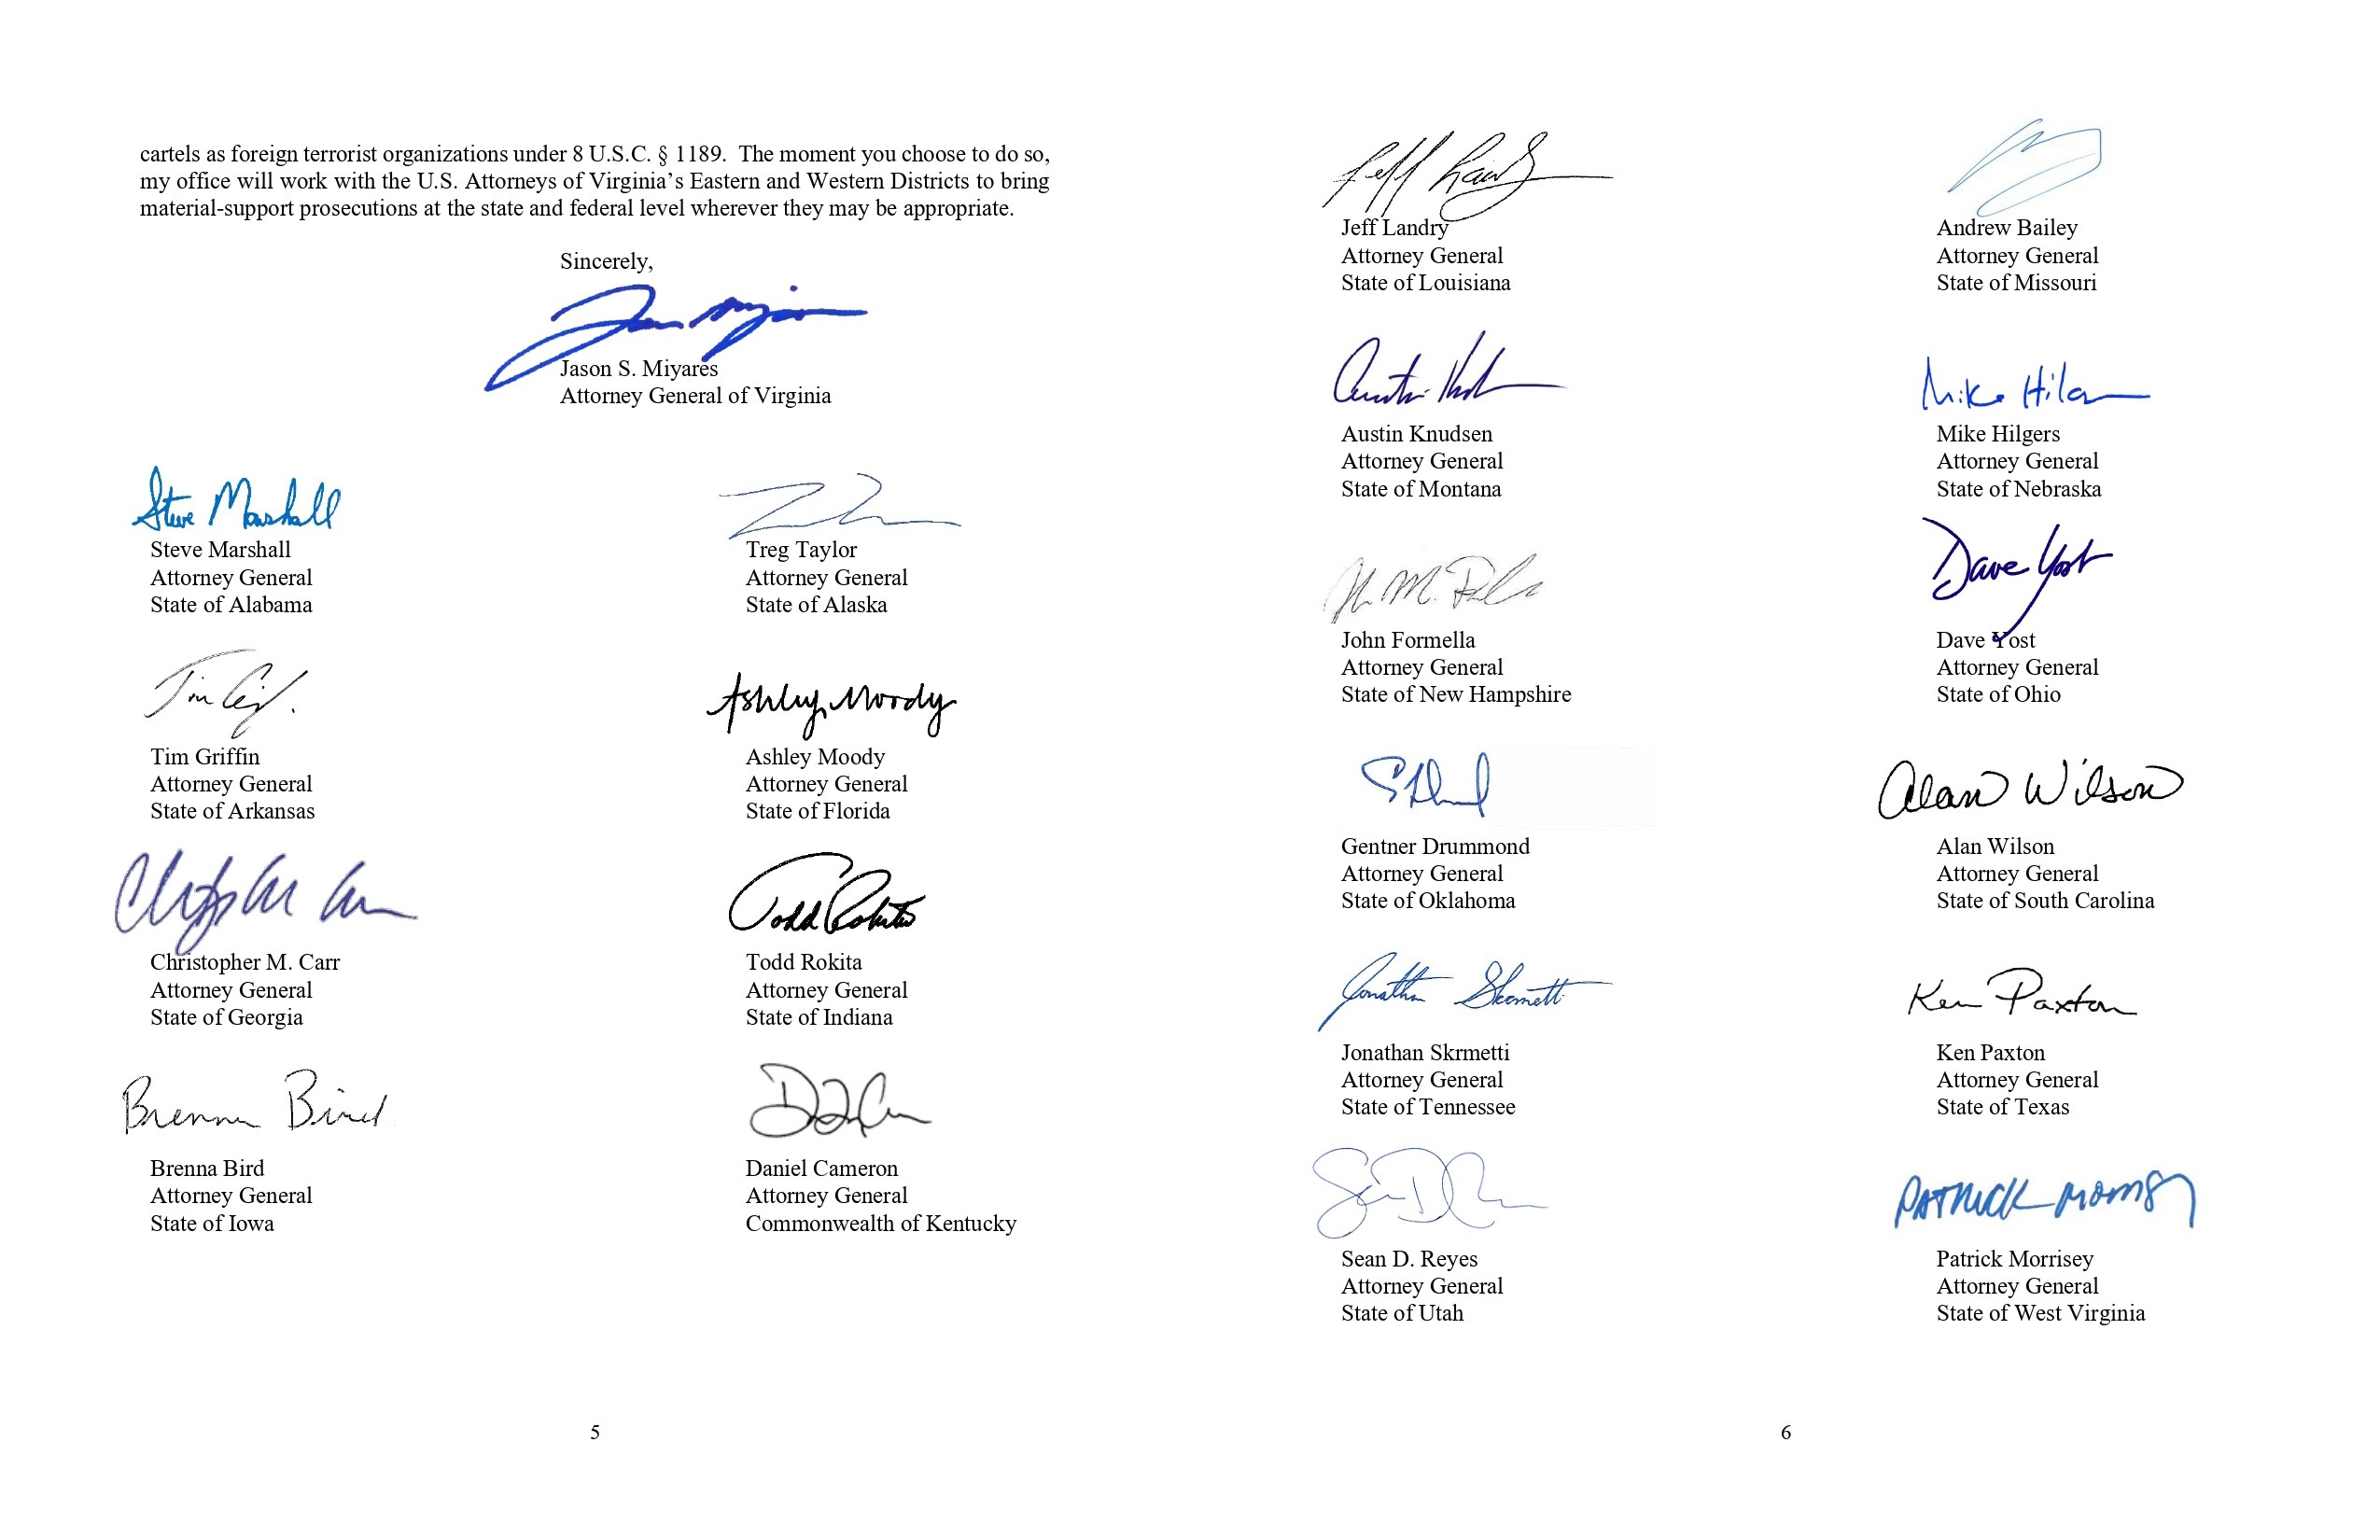 cartels as foreign terrorist organizations under 8 U.S.C. § 1189.  The moment you choose to do so,
my office will work with the U.S. Attorneys of Virginia's Eastern and Western Districts to bring
material-support prosecutions at the state and federal level wherever they may be appropriate.
Sincerely,
Jason S. Miyares
Attorney General of Virginia
Steve Marshall
Steve Marshall
Attorney General
State of Alabama
Treg Taylor
Attorney General
State of Alaska
Tim Griffin
Attorney General
State of Arkansas
Ashley Moody
Ashley Moody
Attorney General
State of Florida
Christopher M. Carr
Attorney General
State of Georgia
Todd Rokita
Todd Rokita
Attorney General
State of Indiana
Brenna Bird
Brenna Bird
Attorney General
State of Iowa
Daniel Cameron
Attorney General
Commonwealth of Kentucky
5
Jeff Landry
Attorney General
State of Louisiana
Andrew Bailey
Attorney General
State of Missouri
Austin Knudsen
Attorney General
State of Montana
Mike
Mike Hilgers
Attorney General
State of Nebraska
John Formella
Attorney General
State of New Hampshire
Dave Yost
Dave Yost
Attorney General
State of Ohio
Gentner Drummond
Attorney General
State of Oklahoma
Alan Wilson
Alan Wilson
Attorney General
State of South Carolina
Jonathan Skrmetti
Jonathan Skrmetti
Attorney General
State of Tennessee
Ken Paxton
Ken Paxton
Attorney General
State of Texas
Sean D. Reyes
Attorney General
State of Utah
Patrick Morrisey
Attorney General
State of West Virginia
6